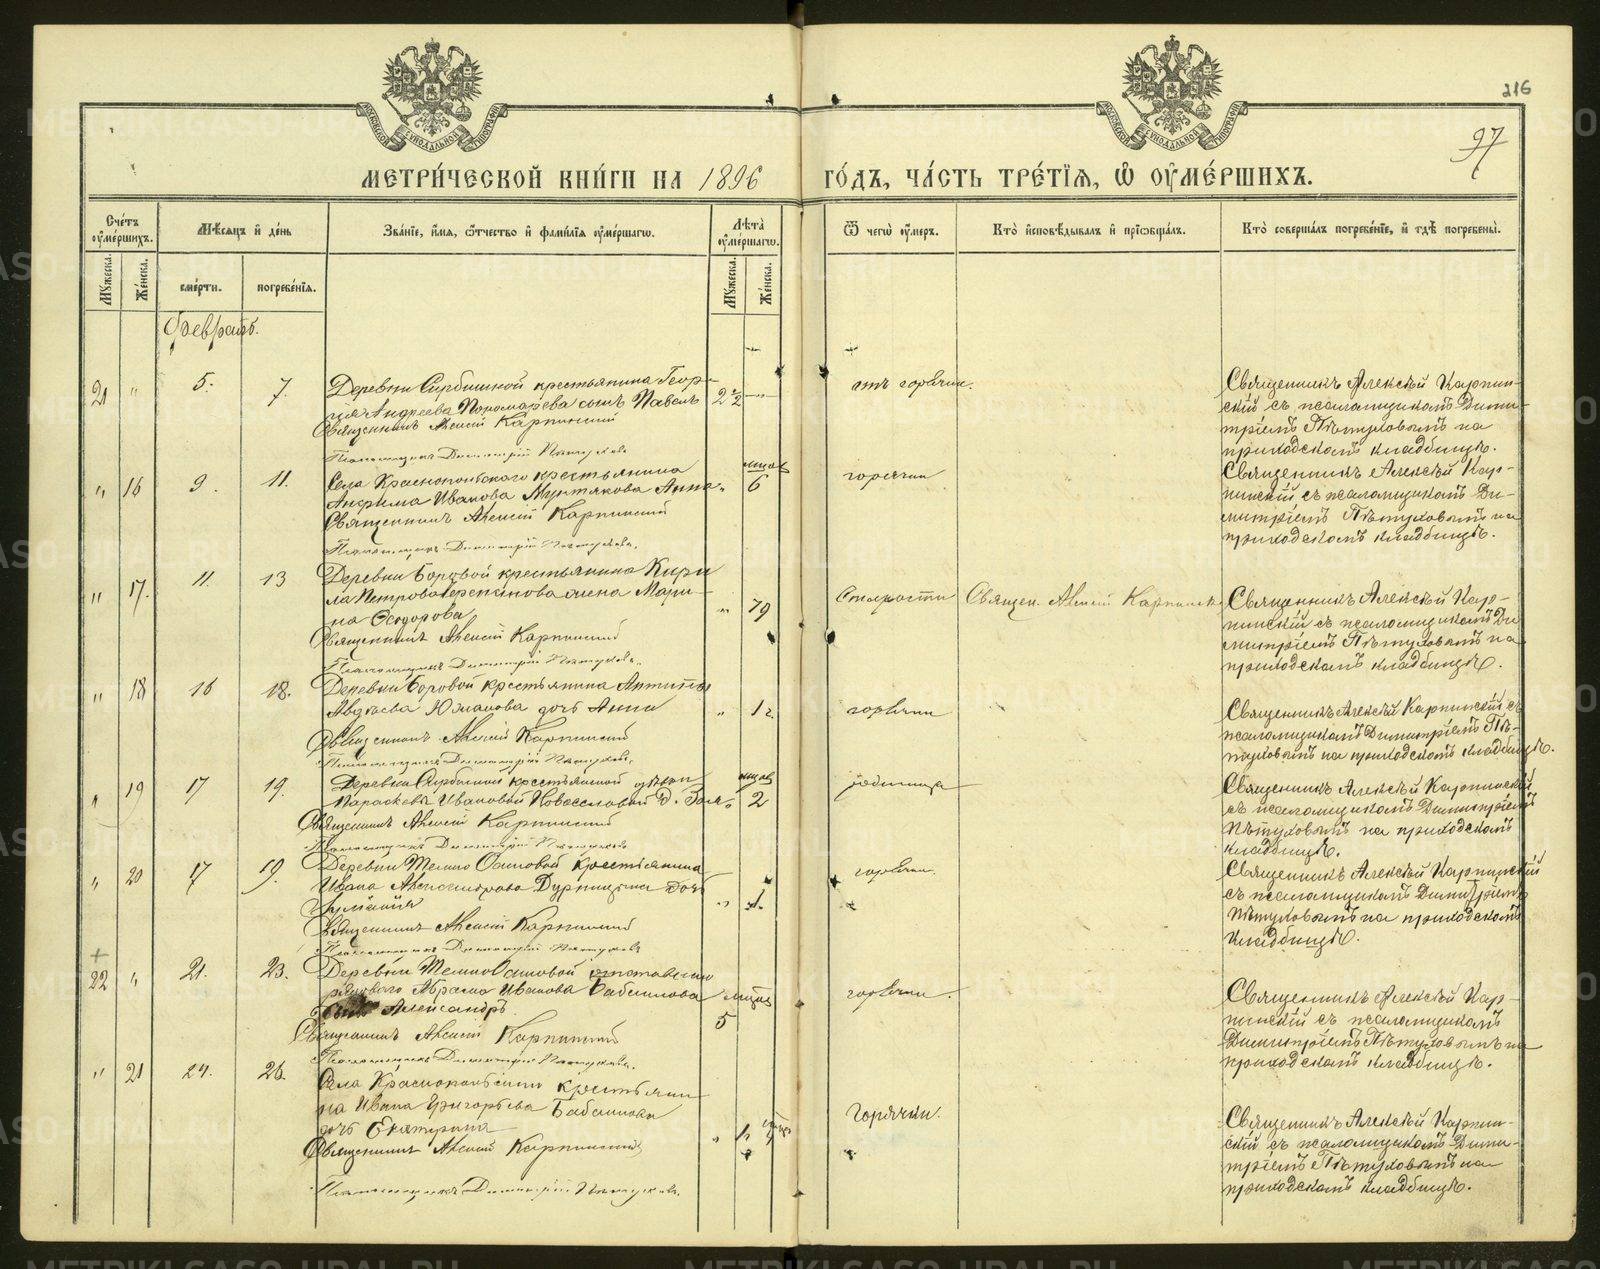 216
97
МЕТРИ́ЧЕСКОЙ КНИ́ГИ НА 1896 ГО́ДЪ, ЧА́СТЬ ТРЕ́ТЇѦ, Ѽ ОУ҆МЕ́РШИХЪ.
Сче́тъ оу҆ме́ршихъ.
Мѣ́сѧцъ и҆ де́нь
Зва́нїе, и҆́мѧ, ѻ҆́тчество и҆ фами́лїѧ оу҆ме́ршагѡ.
Лѣ́та оу҆ме́ршагѡ.
Ѿ чегѡ̀ оу҆́меръ.
Кто̀ и҆сповѣ́дывалъ и҆ прїѡбща́лъ.
Кто̀ соверша́лъ погребе́нїе, и҆ гдѣ̀ погребены̀.
Му́жеска.
Же́нска.
сме́рти.
погребе́нїѧ.
Му́жеска.
Же́нска.
Февраль.
21 " 5. 7.
Деревни Сирбишной крестьянина Геор-
гия Андреева Пономарева сынъ Павелъ
Священникъ Алексій Карпинский
Псаломщикъ Димитрій Пѣтуховъ
2½
отъ горячки.
Священникъ Алексѣй Карпин-
скій съ псаломщикомъ Дими-
тріемъ Пѣтуховымъ на
приходскомъ кладбищѣ.
" 16 9. 11.
Села Краснопольского крестьянина
Ивана Анна
Священникъ Алексій Карпинский
Псаломщикъ Димитрій Пѣтуховъ.
мцов 6
горячки
Священникъ Алексѣй Кар-
пинскій съ псаломщикомъ Ди-
митріемъ Пѣтуховымъ на
приходскомъ кладбищѣ.
" 17. 11. 13
Деревни Боровой крестьянина Кири
ла Петрова жена Мари-
на Ѳедорова
Священникъ Алексій Карпинский
Псаломщикъ Димитрій Пѣтуховъ.
" 79
Старости
Священ. Алексій Карпинск
Священникъ Алексѣй Кар-
пинскій съ псаломщикомъ Ди
митріемъ Пѣтуховымъ на
приходскомъ кладбищѣ.
" 18 16 18.
Деревни Боровой крестьянина Антипы
Авдѣева Южакова дочь Анна
Священникъ Алексій Карпинский
Псаломщикъ Димитрій Пѣтуховъ.
" 1 г.
горячки
Священникъ Алексѣй Карпинскій съ
псаломщикомъ Димитріемъ Пѣ-
туховымъ на приходскомъ кладбищѣ.
" 19 17 19.
Деревни Сирбишной крестьянской дѣвки
Параскевы Ивановой Новоселовой д.
Священникъ Алексій Карпинский
Псаломщикъ Димитрій Пѣтуховъ
мцов 2
родимца
Священникъ Алексѣй Карпинскій
съ псаломщикомъ Димитріемъ
Пѣтуховымъ на приходскомъ
кладбищѣ.
" 20 17 19.
Деревни Темно Осиновой крестьянина
Ивана Александрова Дурницына дочь
Священникъ Алексій Карпинский
Псаломщикъ Димитрій Пѣтуховъ
" 1.
горячки.
Священникъ Алексѣй Карпинский
съ псаломщикомъ Димитріемъ
Пѣтуховымъ на приходскомъ
кладбищѣ.
+
22 " 21. 23.
Деревни ТемноОсиновой отставного
рядового Абрама Иванова Бабинова
сынъ Александръ.
Священникъ Алексій Карпинский
Псаломщикъ Димитрій Пѣтуховъ.
мцов
5
горячки.
Священникъ Алексѣй Кар-
пинскій съ псаломщикомъ
Димитріемъ Пѣтуховымъ на
приходскомъ кладбищѣ.
" 21 24. 26.
Села Краснопольского крестьяни
на Ивана Григорьева Бабинова
дочь Екатерина
Священникъ Алексій Карпинский
Псаломщикъ Димитрій Пѣтуховъ.
Горячки.
Священникъ Алексѣй Карпин-
скій съ псаломщикомъ Дими-
тріемъ Пѣтуховымъ на
приходскомъ кладбищѣ.